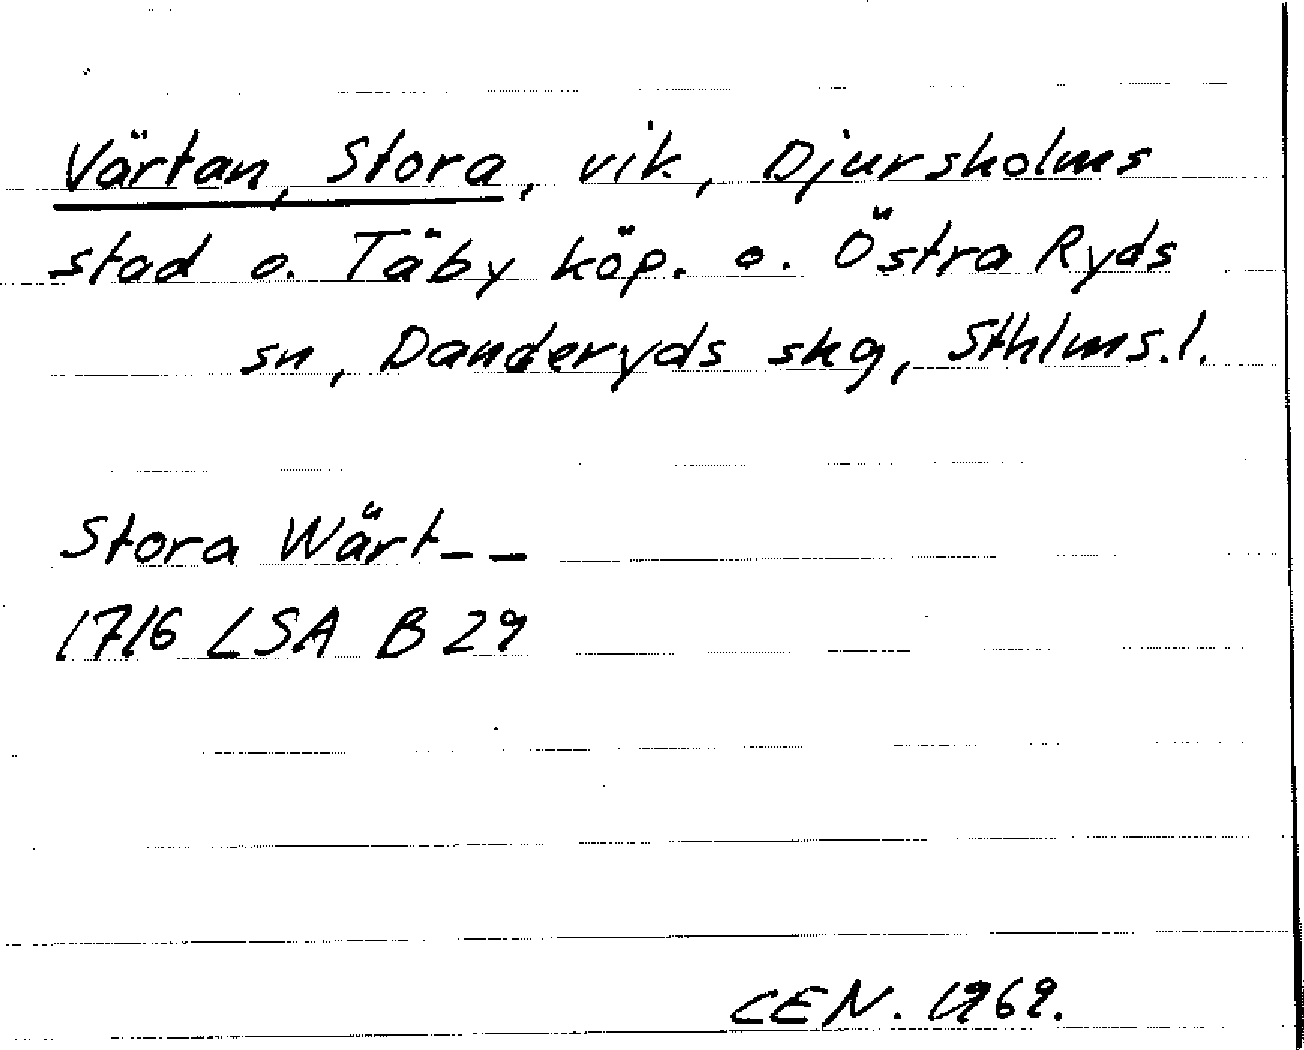 Värtan, Stora, vik, Djursholms
stad o. Täby köp. o. Östra Ryds
sn, Danderyds skg, Sthlms.l.
Stora Wärt--
1716 LSA B 29
CEN. 1969.